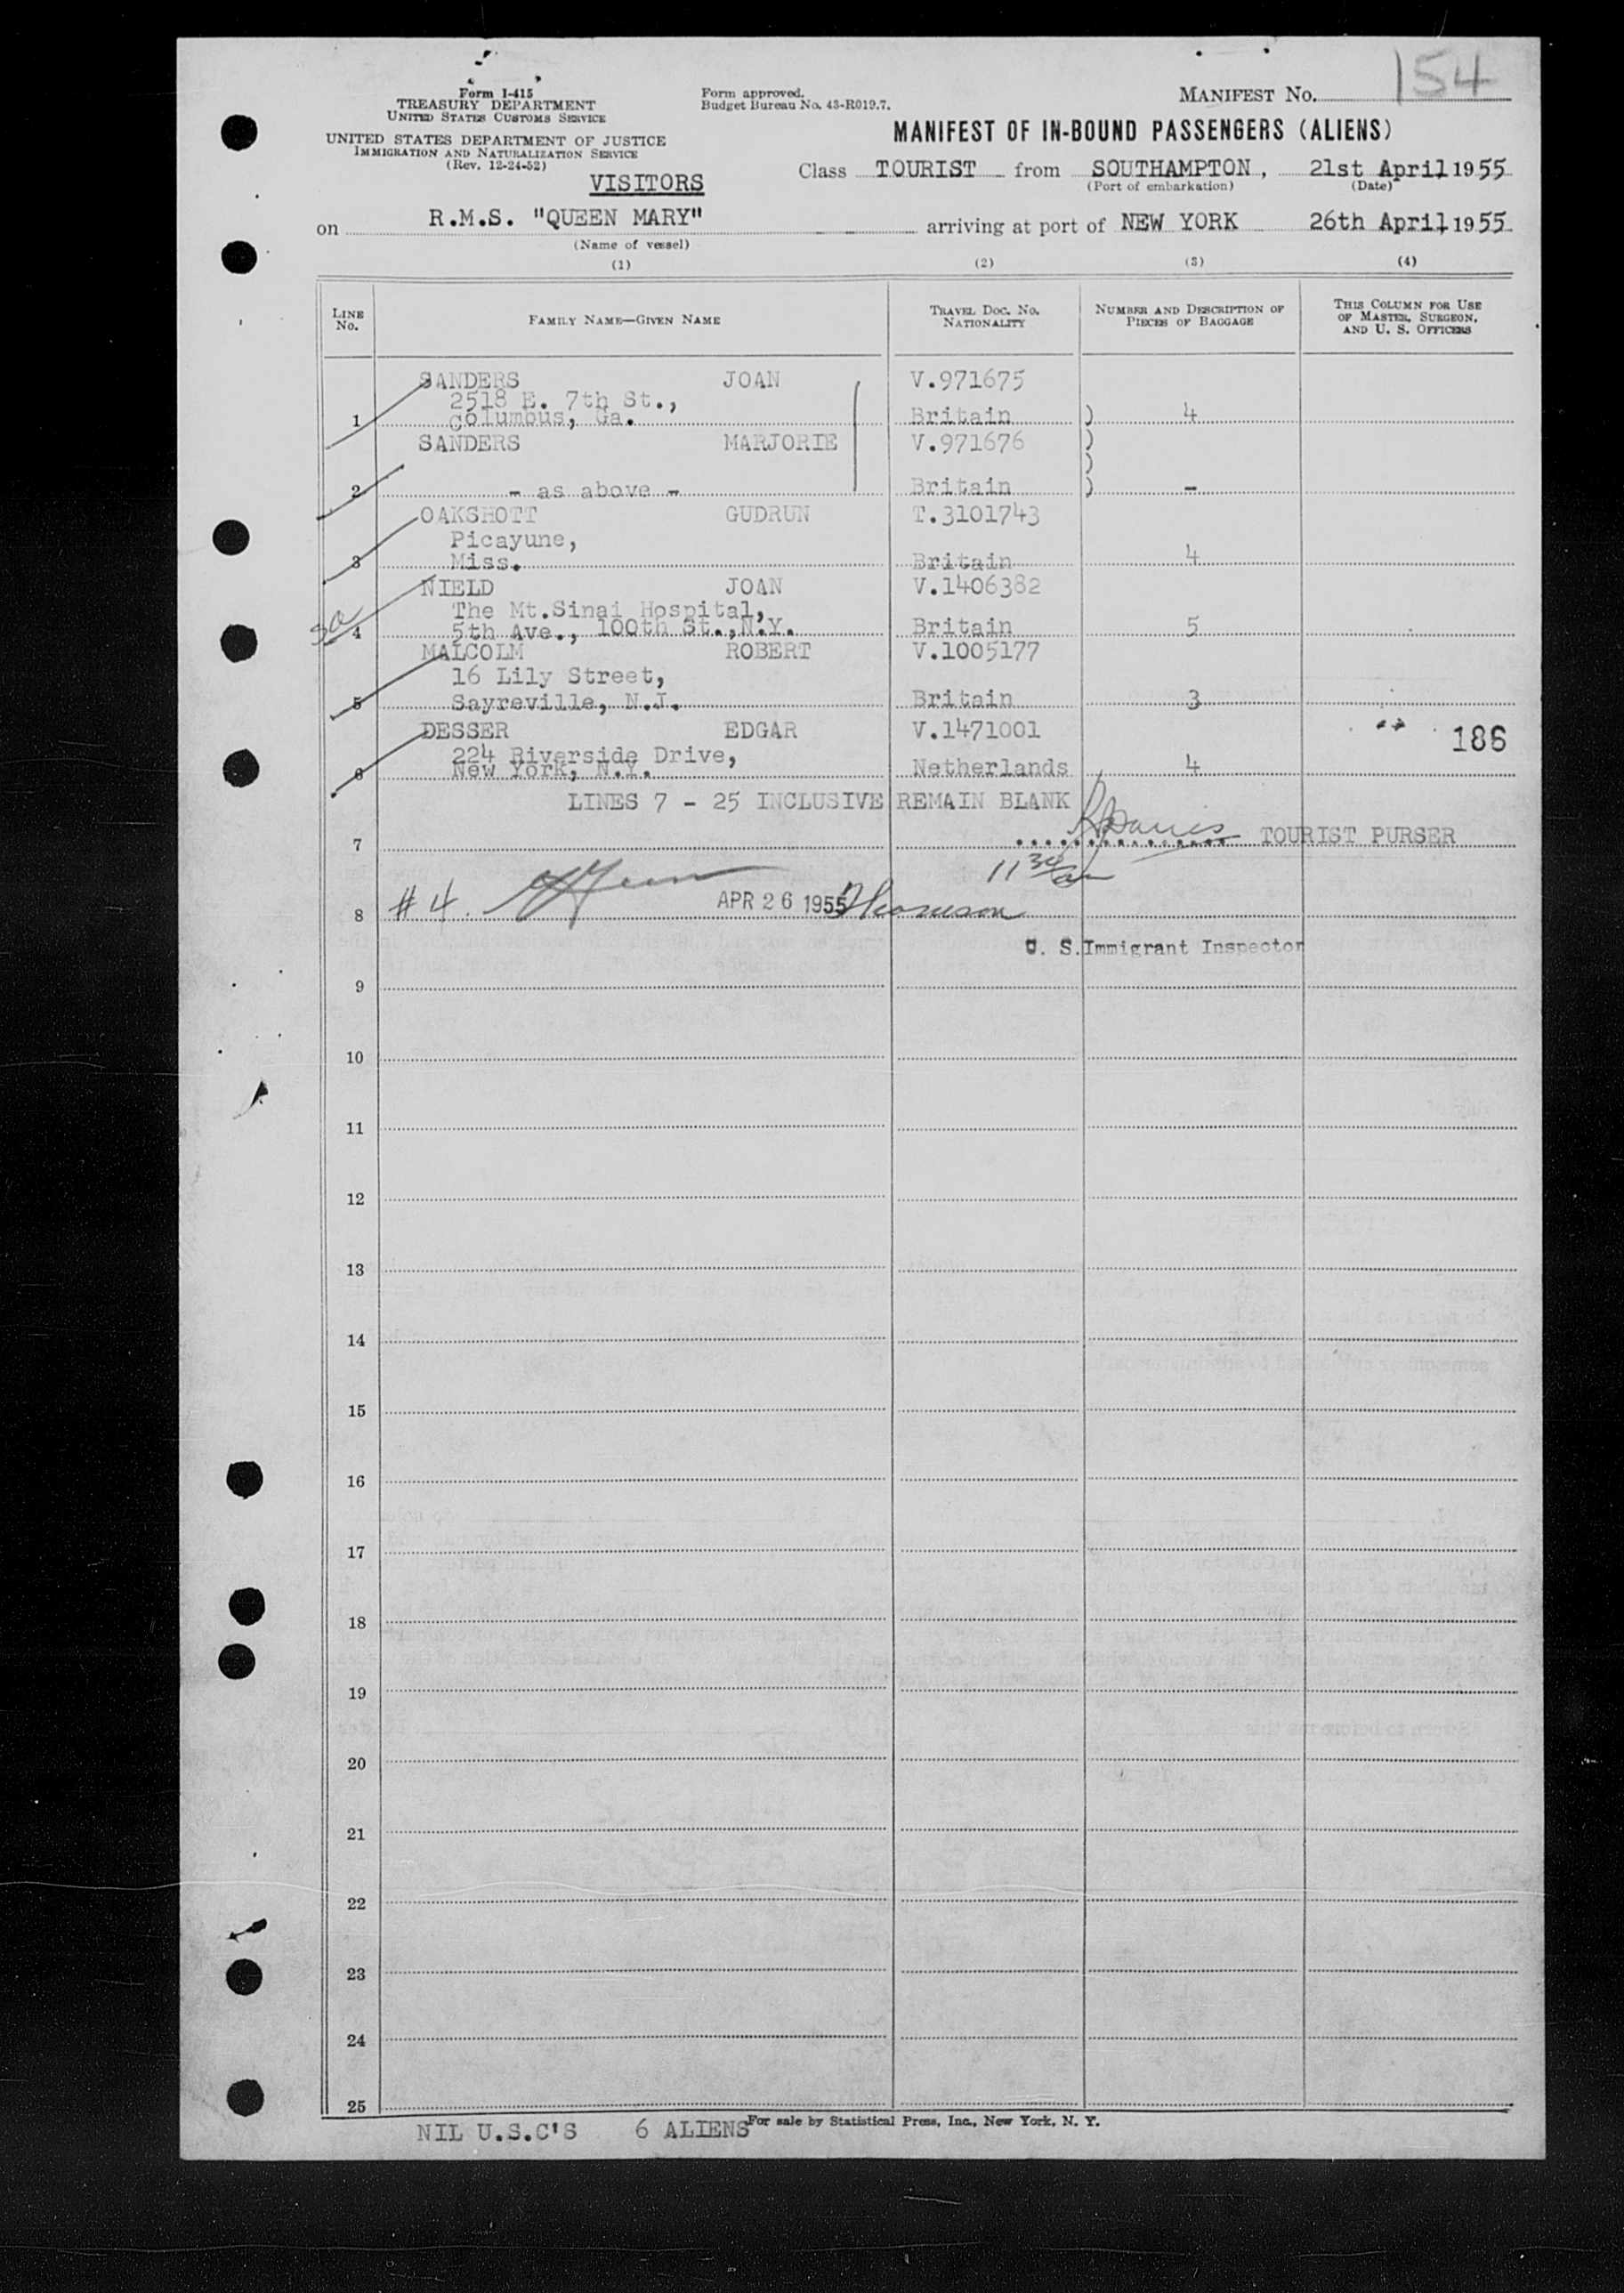 154
Form I-415
TREASURY DEPARTMENT
UNITED STATES CUSTOMS SERVICE
UNITED STATES DEPARTMENT OF JUSTICE
IMMIGRATION AND NATURALIZATION SERVICE
(Rev. 12-24-52)
VISITORS
Form approved.
Budget Bureau No. 43-R019.7.
MANIFEST NO.
MANIFEST OF IN-BOUND PASSENGERS (ALIENS)
Class TOURIST from SOUTHAMPTON, 21st April, 1955
(Port of embarkation) (Date)
on R.M.S. "QUEEN MARY" arriving at port of NEW YORK 26th April, 1955
(Name of vessel)
(1) (2) (3) (4)
LINE NO. FAMILY NAME—GIVEN NAME TRAVEL DOC. NO. NATIONALITY NUMBER AND DESCRIPTION OF PIECES OF BAGGAGE THIS COLUMN FOR USE OF MASTER, SURGEON, AND U. S. OFFICERS
SANDERS JOAN V.971675
2518 E. 7th St.,
1 Columbus, Ga. Britain ) 4
SANDERS MARJORIE V.971676 )
)
2 - as above - Britain ) -
OAKSHOTT GUDRUN T.3101743
Picayune,
3 Miss. Britain 4
NIELD JOAN V.1406382
The Mt.Sinai Hospital,
4 5th Ave., 100th St.,N.Y. Britain 5
MALCOLM ROBERT V.1005177
16 Lily Street,
5 Sayreville, N.J. Britain 3
DESSER EDGAR V.1471001 186
224 Riverside Drive,
6 New York, N.Y. Netherlands 4
LINES 7 - 25 INCLUSIVE REMAIN BLANK
7 TOURIST PURSER
8 # 4. APR 26 1955
U. S. Immigrant Inspector
9
10
11
12
13
14
15
16
17
18
19
20
21
22
23
24
25
NIL U.S.C'S 6 ALIENS For sale by Statistical Press, Inc., New York, N. Y.